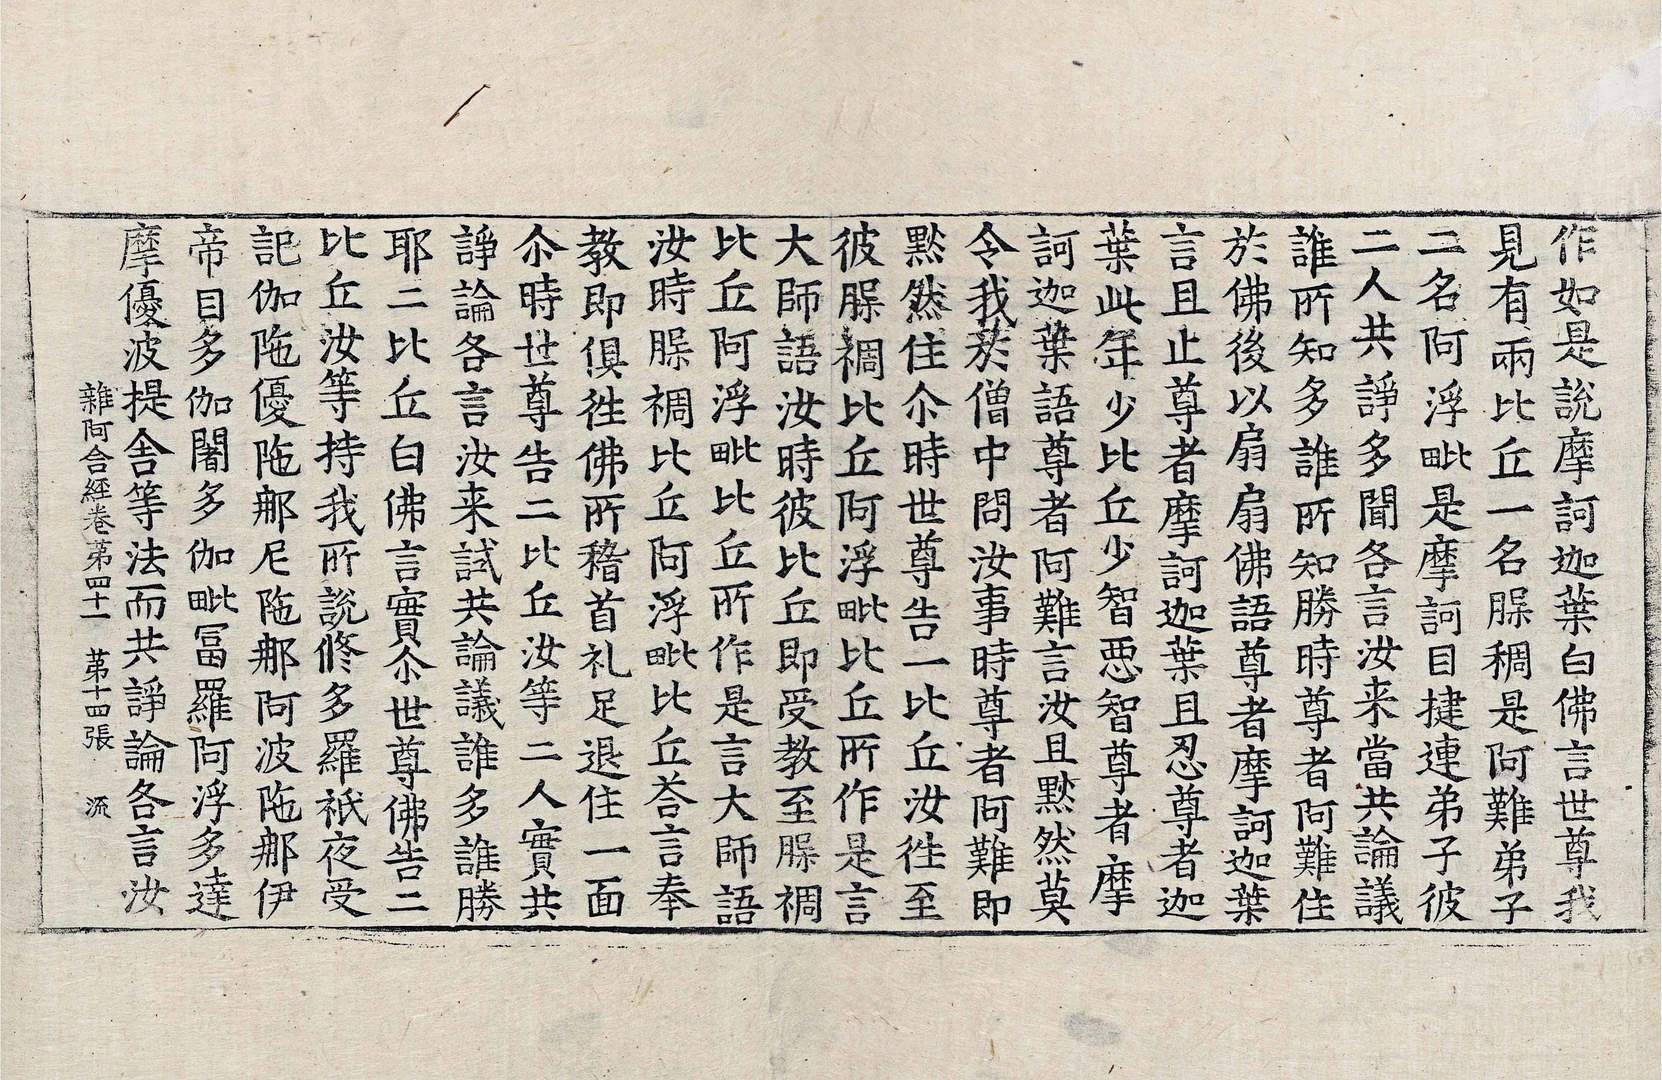 作如是說摩訶迦葉白佛言世尊我
見有兩比丘一名𦜕稠是阿難弟子
二名阿浮毗是摩訶目揵連弟子彼
二人共諍多聞各言汝来當共論議
誰所知多誰所知勝時尊者阿難住
於佛後以扇扇佛語尊者摩訶迦葉
言且止尊者摩訶迦葉且忍尊者迦
葉此年少比丘少智惡智尊者摩
訶迦葉語尊者阿難言汝且黙然莫
令我於僧中問汝事時尊者阿難即
黙然住尒時世尊告一比丘汝徃至
彼𦜕禂比丘阿浮毗比丘所作是言
大師語汝時彼比丘即受教至𦜕禂
比丘阿浮毗比丘所作是言大師語
汝時𦜕禂比丘阿浮毗比丘荅言奉
教即俱徃佛所稽首礼足退住一面
尒時世尊告二比丘汝等二人實共
諍論各言汝来試共論議誰多誰勝
耶二比丘白佛言實尒世尊佛告二
比丘汝等持我所說修多羅祇夜受
記伽陁優陁那尼陁那阿波陁那伊
帝目多伽闍多伽毗富羅阿浮多達
摩優波提舍等法而共諍論各言汝
雜阿含經卷第四十一 第十四張 流